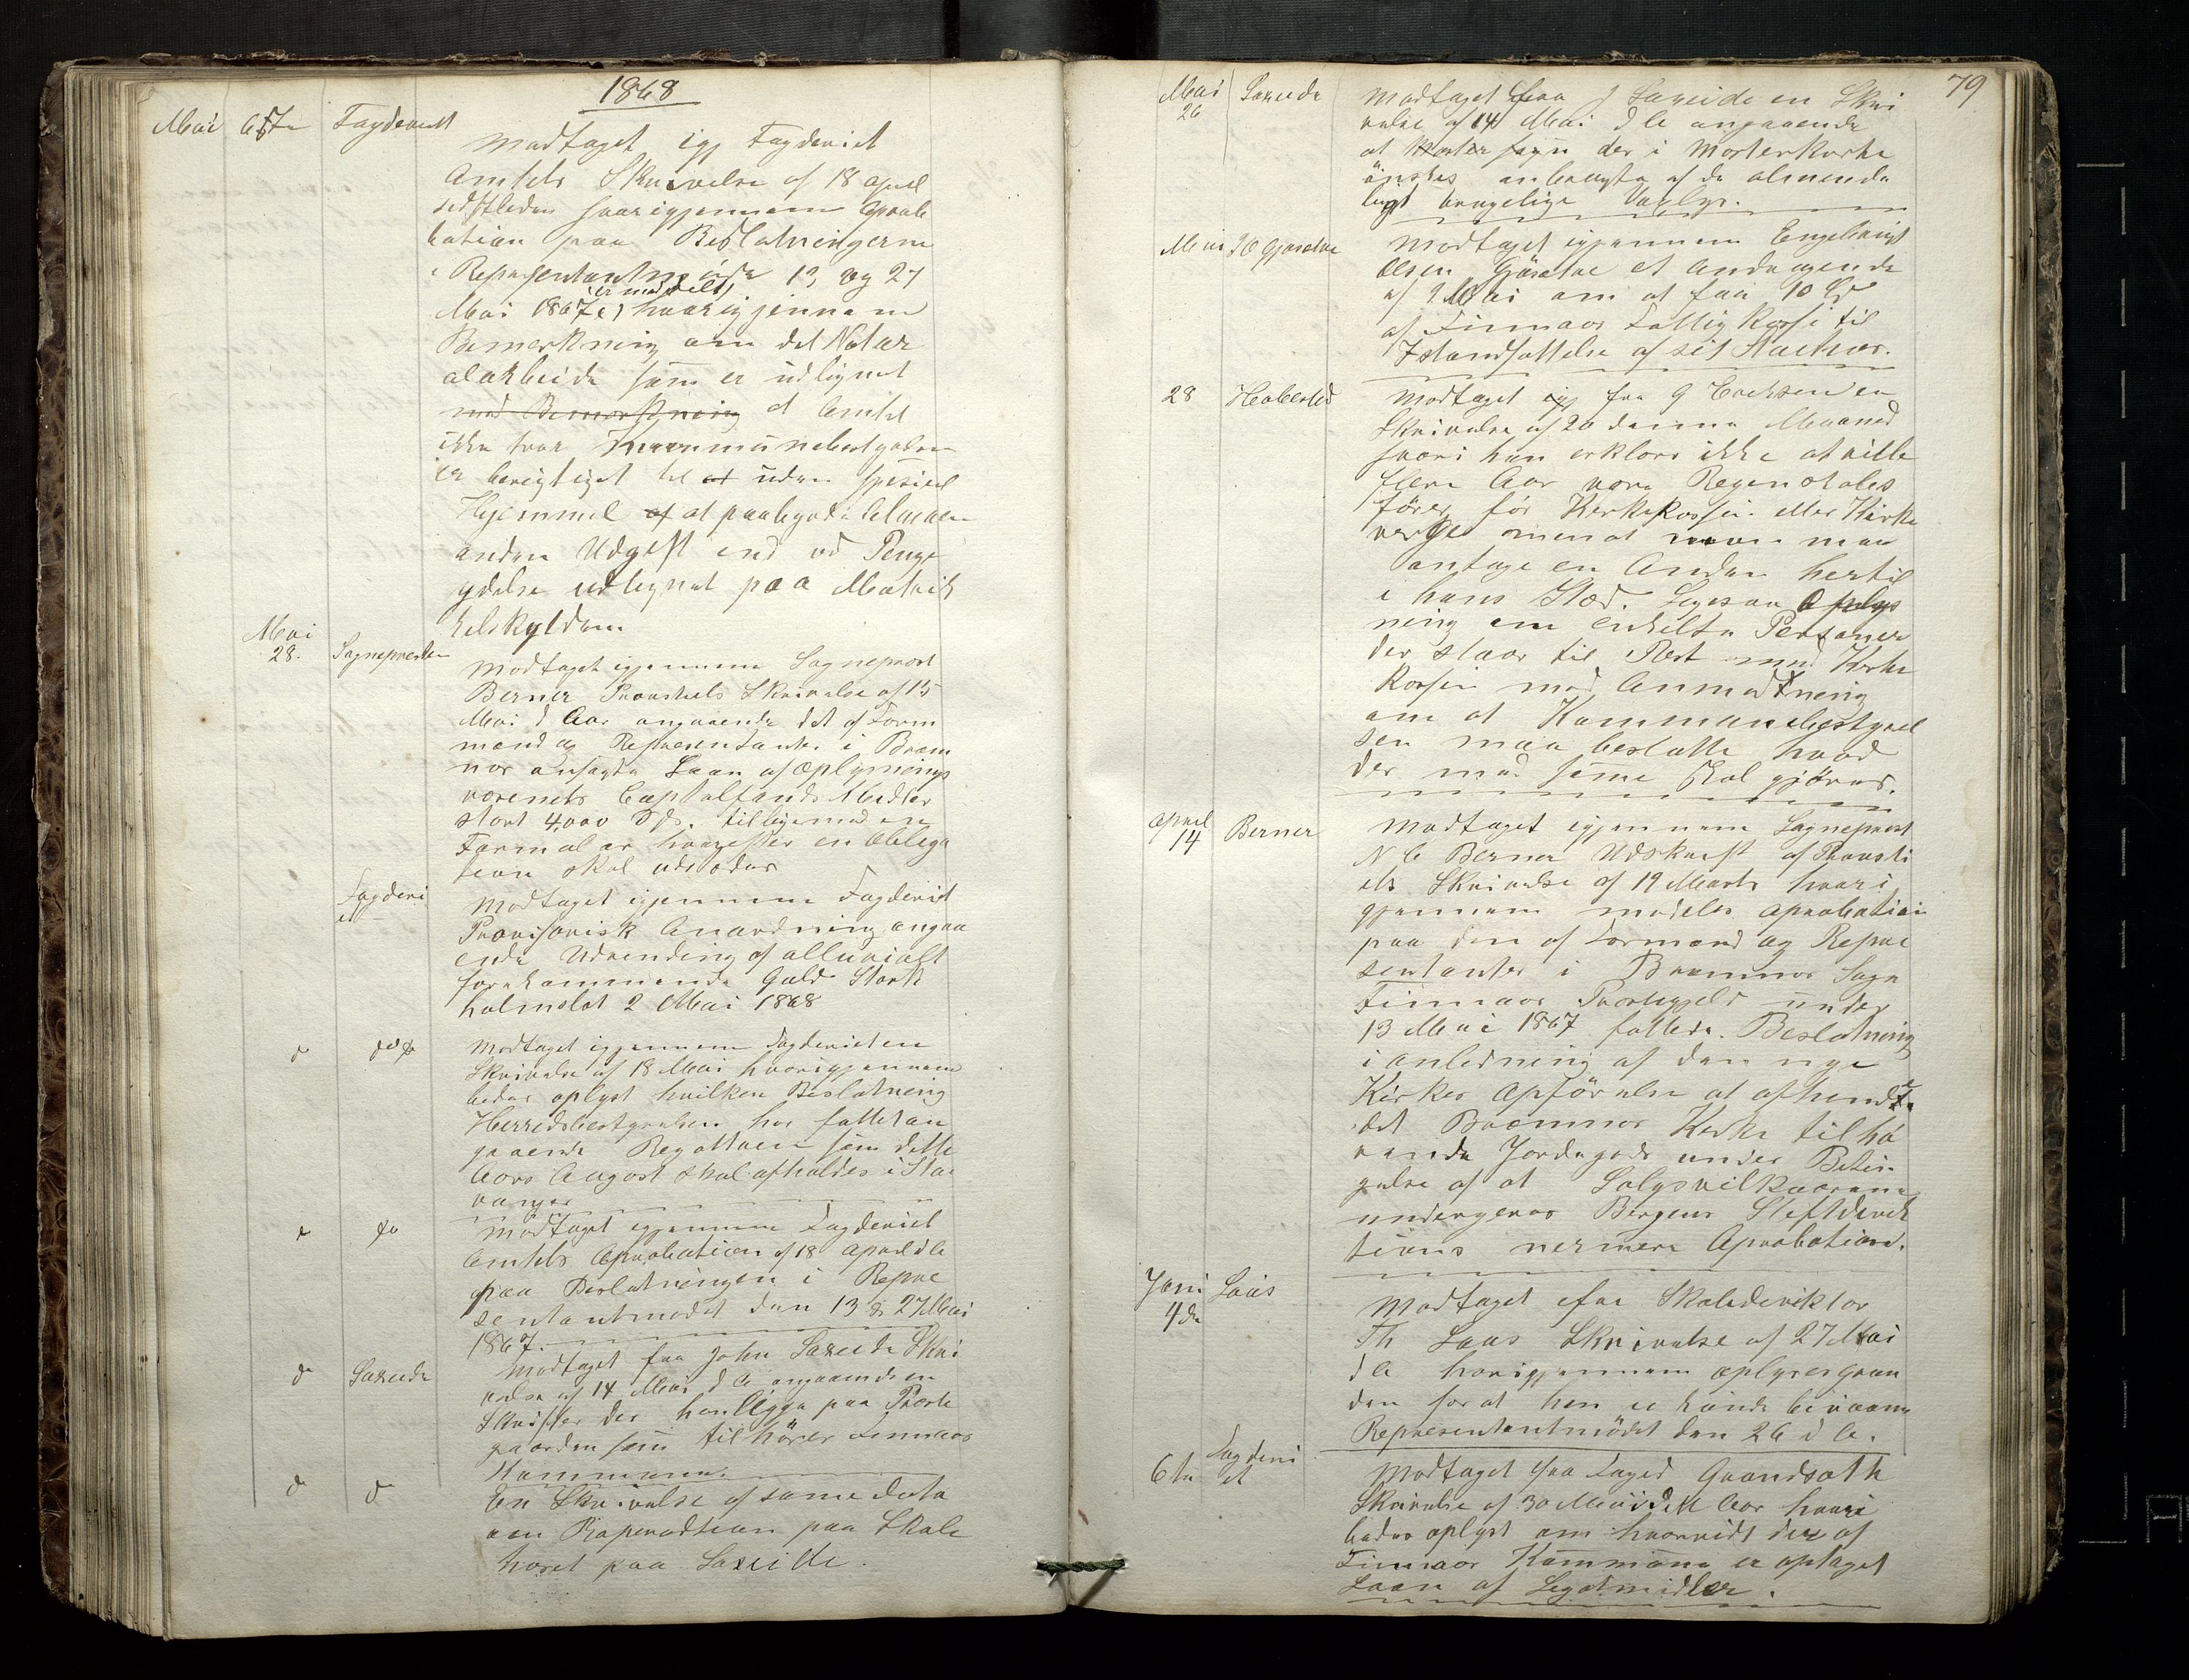 1868
Mai 6te Fogderiet
Modtaget igj Fogderiet
Amtets Skrivelse af 18 April
sidstleden hvorigjennem Aprobe
bation paa Beslutningerne
i Representantmøde 13 og 27
(er meddelt)
Mai 1867 hvorigjennem
Bemerkning om det Natur
alarbeide som er udlignet
med Bemærkning at Amtet
ikke tror Kommunebestyrelsen
er berigtiget til at uden spesiel
Hjemmel af at paabyrde Almuen
anden Udgift end ved Penge
ydelse udlignet paa Matrik
kelskylden
Mai
28. Sognepresten
Modtaget igjennem Sogneprest
Berner Provstiets Skrivelse af 15
Mai d Aar angaaende det af Form
mend og Representanter i Bræm
nes ansøgte Laan af Oplysnings
væsenets Capitalfonds Midler
stort 4,000 Spd. tilligemed en
Formular hvorefter en Obliga
tion skal udstedes
Fogderi
et
Modtaget igjennem Fogderiet
Provisorisk Anordning angaa
ende Udvinding af alluvialt
forekommende Guld Stock
holmslot 2 Mai 1868
d do
Modtaget igjennem Fogderiet en
Skrivelse af 18 Mai hvorigjennem
bedes oplyst hvilken Beslutning
Herredsbestyrelsen har fattet an
gaaende Regattaen som dette
Aars August skal afholdes i Sta
vanger
d do
Modtaget igjennem Fogderiet
Amtets Aprobation af 18 April d A
paa Beslutningen i Repre
sentantmødet den 13 & 27 Mai
1867.
d Sareide
Modtaget fra John Sareide Skri
velse af 14 Mai d A angaaende en
Skrifter der henligge paa Preste
gaarden som tilhører Finnaas
Kommune.
d d
En Skrivelse af same Dato
om Reperadtion paa Skole
huset paa Sareide.
79
Mai
26 Sareide
Modtaget fra J Sareide en Skri
velse af 14 Mai d A angaaende
at Moster sogn der i Mosterkirke
ønskes anbragte af de almende
ligt brugelige Voxlys.
Mai 20 Gjøsetre
Modtaget igjennem Engelbrigt
Olsen Gjøsetre et Andragende
af 9 Mai om at faa 10 Spd
af Finnaas Fattigkasse til
Istandsættelse af sit Staehus.
28 Habersted
Modtaget igj fra G Ericksen en
Skrivelse af 20 denne Maaned
hvori han erklærer ikke at ville
flere Aar være Regenskabs
fører for Kirkekassen eller Kirke
verge men at man maa
antage en Anden hertil
i hans Sted. Ligesaa Oplys
ning om enkelte Personer
der staar til Rest med Kirke
kassen med Anmodtning
om at Kommunebestyrel
sen maa beslutte hvad
der med same skal gjøres.
April
14 Berner
Modtaget igjennem Sogneprest
N C Berner Udskrift af Provsti
ets Skrivelse af 19 Marts hvori
gjennem meddeles Aprobation
paa den af Formænd og Repre
sentanter i Bræmnes Sogn
Finnaas Prestegjeld under
13 Mai 1867 fattede Beslutning
i anledning af den nye
Kirkes Opførelse at afhende
det Bræmnes Kirke tilhø
rende Jordegods under Betin
gelse af at Salgsvilkaarene
undergives Bergens Stiftdirek
tions nermere Aprobation.
Juni
4de Laas
Modtaget efra Skoledirektør
Th Laas Skrivelse af 27 Mai
d A hvorigjennem oplyses grun
den for at han ei kunde bivaane
Representantmødet den 26 d A.
6te Fogderi
et
Modtaget fra Foged Grandsøth
Skrivelse af 30 Mai dett Aar hvori
bedes oplyst om hvorvidt der af
Finnaas Kommune er optaget
Laan af Legatmidler.